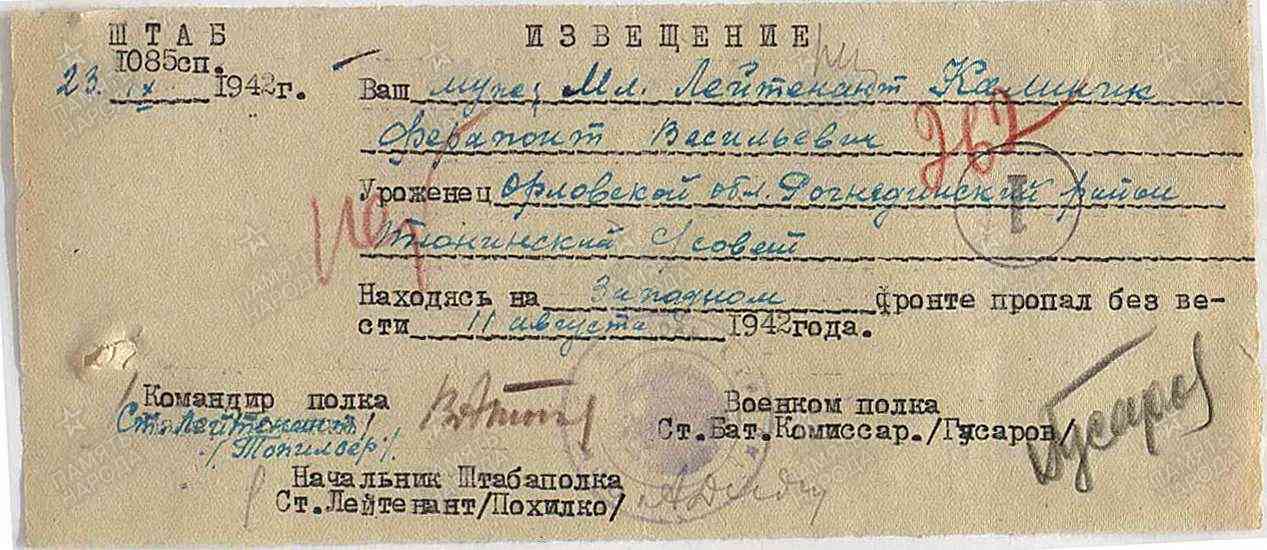 ШТАБ
1085сп.
23. IX 1942г.
ИЗВЕЩЕНИЕ
Ваш муж, Мл. Лейтенант Калинчик
Ферапонт Васильевич
Уроженец Орловской обл. Рогнединский район
с/совет
Находясь на Западном фронте пропал без ве-
сти 11 августа 1942года.
Командир полка
Ст. Лейтенант/
Военком полка
Ст.Бат.Комиссар./Гусаров/
Гусаров
Начальник Штабаполка
Ст.Лейтенант/Похилко/
ПАМЯТЬ НАРОДА